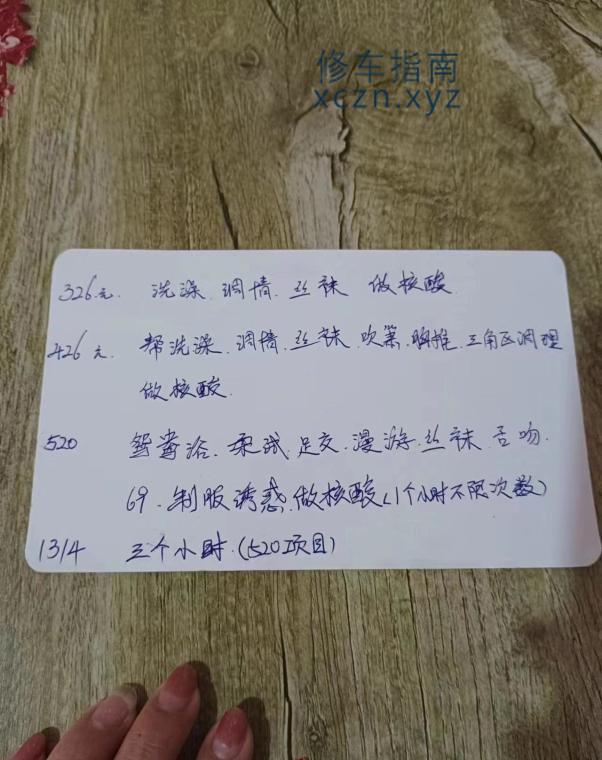 修车指南
xczn.xyz
326元. 洗澡.调情.丝袜 做核酸.
426元. 帮洗澡.调情.丝袜.吹箫.胸推.三角区调理
做核酸.
520 鸳鸯浴.柔式.足交.漫游.丝袜.舌吻.
69.制服诱惑.做核酸(1个小时不限次数)
1314 三个小时.(520项目)